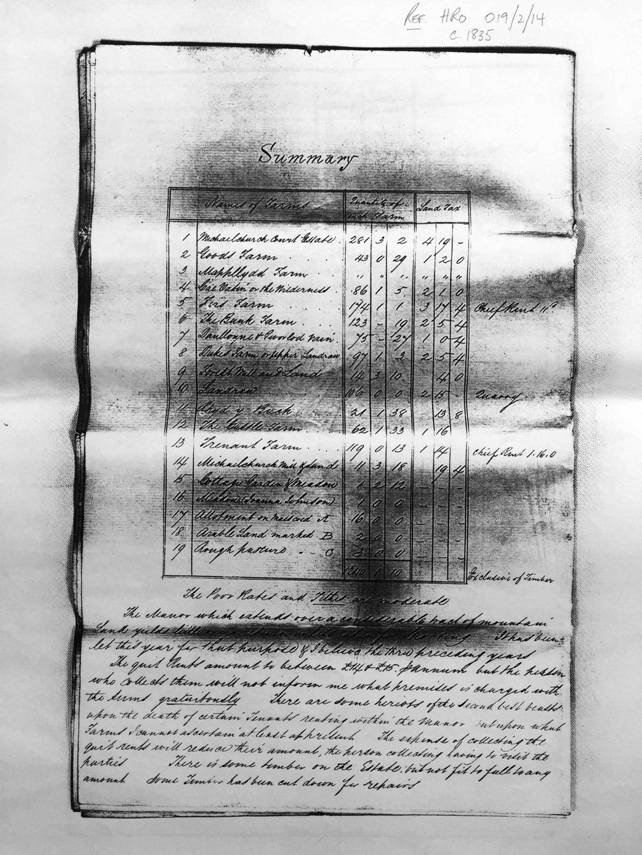 Ref HRO 019/2/14
c 1835
Summary
Names of Farms Quantity of each Farm Land Tax
1 Michaelchurch Court Estate 281 3 2 4 19 -
2 Goods Farm 43 0 29 1 2 0
3 Farm " " " " " "
4 or the Wilderness 86 1 5 2 1 0
5 Firs Farm 174 1 1 3 17 4 Chief Rent
6 The Bank Farm 123 - 19 2 5 4
7 75 - 27 1 0 4
8 Dukes Farm or Upper Landraw 97 1 3 2 5 4
9 Mill and Land 14 3 10 4 0
10 Landraw 0 0 2 15 - Quarry
11 21 1 38 13 8
12 The Farm 62 1 33 1 16
13 Trenant Farm 119 0 13 1 14 Chief Rent 1.16.0
14 Michaelchurch Mill & Land 11 3 18 19 4
15 Cottage Garden & Meadow 1 2 12 - -
16 Johnson 0 0 - -
17 Allotment on A 16 0 0 - -
18 Arable Land marked B 2 0 0 - -
19 Rough pasture - C 3 0 0 - -
Exclusive of Timber
The Poor Rates and Tithes are moderate
The Manor which extends over a considerable tract of mountain
Land yields It has been
let this year for that purpose & I believe the three preceding years
The quit Rents amount to between £14 & £15 annum but the person
who collects them will not inform me what premises is charged with
the Sums gratuitously There are some heriots of the second best beasts
upon the death of certain Tenants renting within the Manor but upon what
Farms I cannot ascertain at least at present The expense of collecting the
quit rents will reduce their amount, the person collecting having to visit the
parties There is some timber on the Estate, but not fit to fall to any
amount some Timber has been cut down for repairs